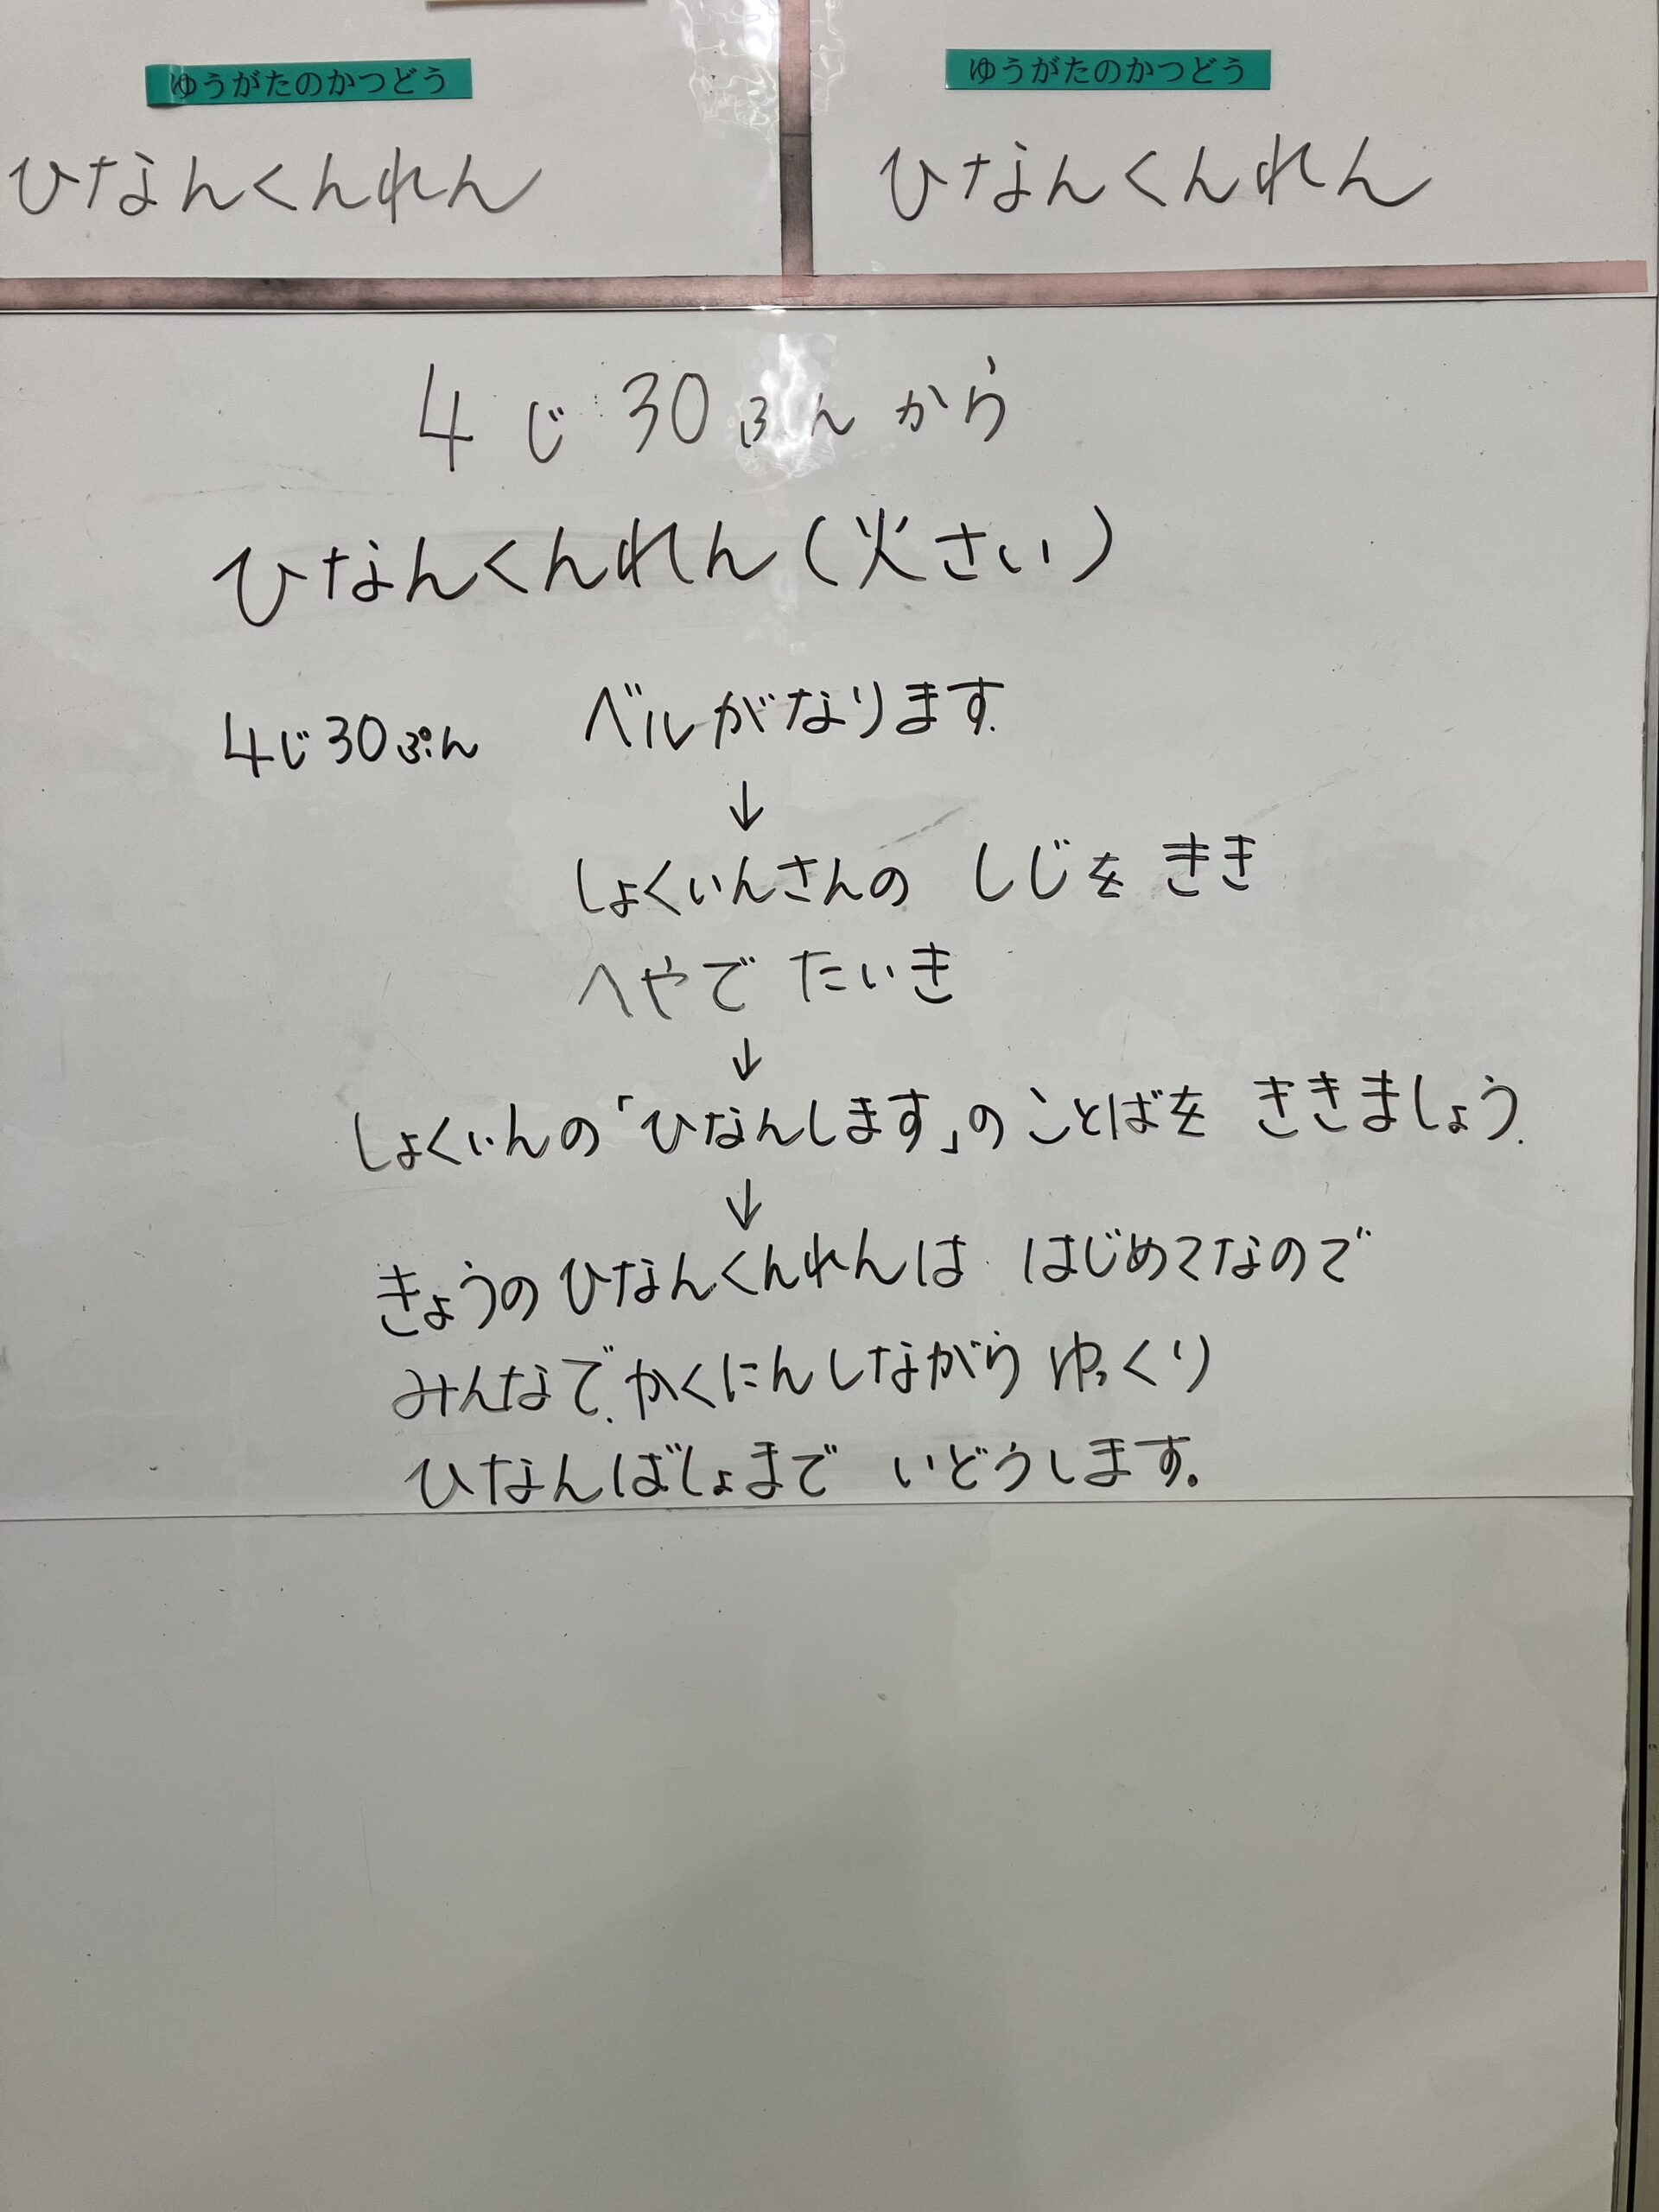 ゆうがたのかつどう
ひなんくんれん
ゆうがたのかつどう
ひなんくんれん
4じ30ぷんから
ひなんくんれん(火さい)
4じ30ぷん ベルがなります.
↓
しょくいんさんの しじを きき
へやで たいき
↓
しょくいんの「ひなんします」の ことばを ききましょう.
↓
きょうのひなんくんれんは はじめてなので
みんなで、かくにんしながら ゆっくり
ひなんばしょまで いどうします。